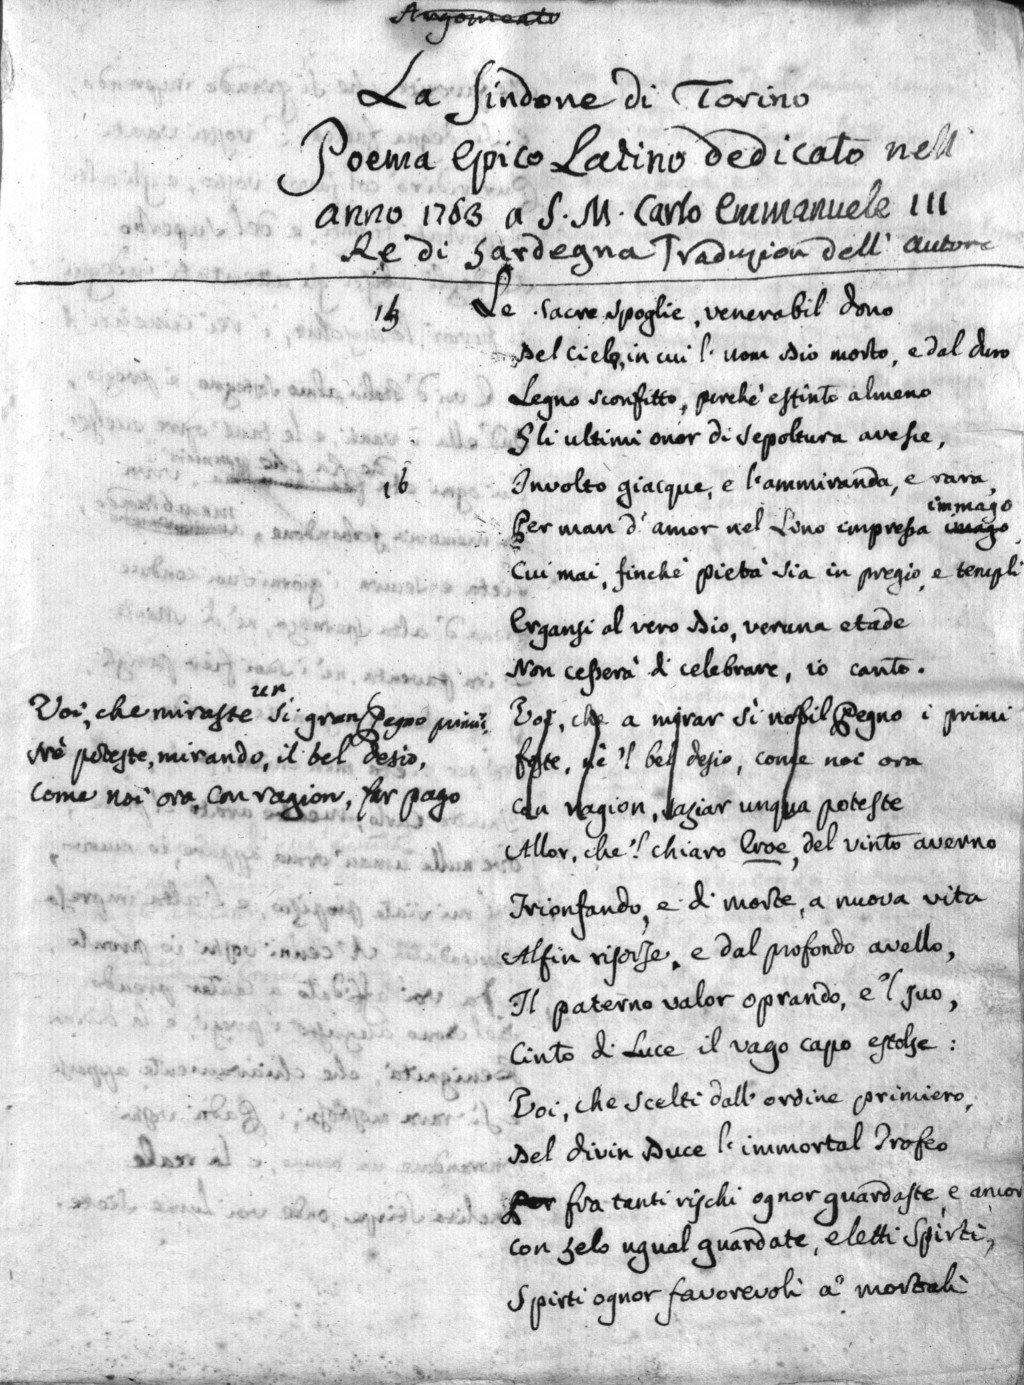 Argomento
La Sindone di Torino
Poema Epico Latino dedicato nell'
anno 1763 a S. M. Carlo Emmanuele III
Re di Sardegna Traduzion dell' autore
Le sacre spoglie, venerabil dono
Del Cielo, in cui l' uom Dio morto, e dal duro
Legno sconfitto, perchè estinto almeno
Gli ultimi onor di sepoltura avesse,
16 Involto giacque, e l' ammiranda, e rara,
immago
Per man d' amor nel Lino impressa imago,
Cui mai, finchè pietà sia in pregio, e templi
Ergansi al vero Dio, veruna etade
Non cesserà di celebrare, io canto.
un
Voi, che miraste si gran Pegno primi,
Nè poteste, mirando, il bel desio,
Come noi ora, con ragion, far pago
Voi, che a mirar sì nobil Pegno i primi
foste, nè 'l bel desio, come noi ora
con ragion, saziar unqua poteste
Allor, che 'l chiaro Eroe, del vinto averno
Trionfando, e di morte, a nuova vita
Alfin risorse, e dal profondo avello,
Il paterno valor oprando, e 'l suo,
Cinto di Luce il vago capo estolse:
Voi, che scelti dall' ordine primiero,
Del divin Duce l' immortal Trofeo
per fra tanti rischi ognor guardaste, e ancor
con zelo ugual guardate, eletti Spirti,
Spirti ognor favorevoli a' mortali